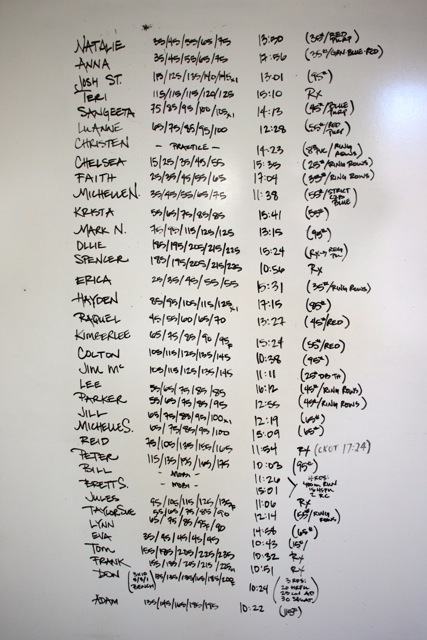 NATALIE 35/45/55/65/75 13:30 (35#/RED PURP)
ANNA 35/45/55/65/75 17:56 (35#/GRN-BLUE-RED)
JOSH ST. 115/125/135/140/145x1 13:01 (95#)
TERI 115/115/115/120/125 15:10 RX
SANGEETA 75/85/95/100/105x1 14:13 (45#/BLUE PURP)
LUANNE 65/75/85/95/100 12:28 (55#/RED PURP)
CHRISTEN - PRACTICE - 14:23 (8#PVC/RING ROWS)
CHELSEA 15/25/35/45/55 15:35 (25#/RING ROWS)
FAITH 25/35/45/55/65 17:04 (35#/RING ROWS)
MICHELLE N. 35/45/55/65/75 11:38 (55#/STRICT C2B BLUE)
KRISTA 55/65/75/85/85 15:41 (55#)
MARK N. 75/95/115/125/125 13:15 (95#)
OLLIE 185/195/205/215/225 15:24
SPENCER 185/195/205/215/225 10:56 RX
ERICA 25/35/45/55/55 15:31 (35#/RING ROWS)
HAYDEN 85/95/105/115/125x1 17:15 (85#)
RAQUEL 45/55/60/65/70 13:27 (45#/RED)
KIMBERLEE 65/75/85/90/95 15:24 (55#/RED)
COLTON 105/115/125/135/145 10:38 (95#)
JIM MC 105/115/125/135/145 11:11
LEE 55/65/75/85/85 16:12 (45#/RING ROWS)
PARKER 55/65/75/85/95 12:55 (45#/RING ROWS)
JILL 65/75/85/95/100x1 12:19 (65#)
MICHELLE S. 65/75/85/95/100 15:09 (65#)
REID 75/105/135/155/165 11:54 RX (CKOT 17:24)
PETER 115/135/155/165/175 10:03 (95#)
BILL - MOBI - 11:26
BRETT S. - MOBI - 15:01
JULES 95/105/115/125/135 11:06 RX
TAYLOR 55/65/75/85/90 12:14 (55#/RING ROWS)
LYNN 65/75/85/85/90 14:58 (65#)
EVA 35/45/45/45/45 10:43
TOM 155/185/205/225/235 10:32 RX
FRANK 155/185/215/225 10:51 RX
DON BENCH 10:24 (3 RDS:
ADAM 135/145/165/185/195 10:22 (115#)